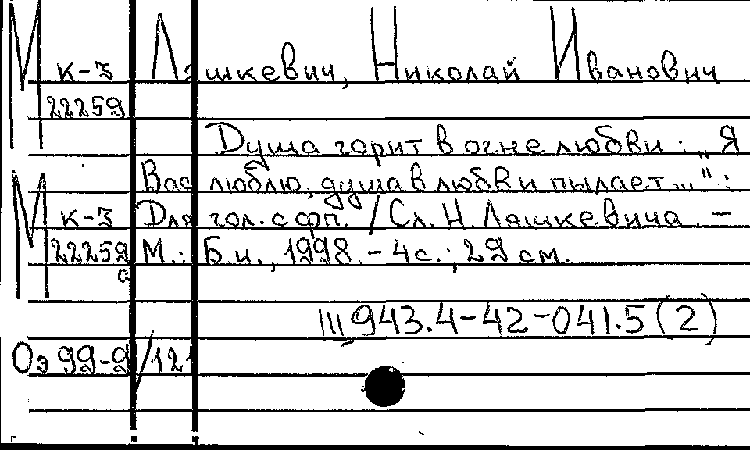 М к-3 Ляшкевич, Николай Иванович
22259
Душа горит в огне любви : „Я
Вас люблю, душа в любви пылает...“ :
М к-3 Для гол. с фп. / Сл. Н. Ляшкевича. –
22259а М.: Б.и., 1998. – 4с.; 29 см.
Щ943.4-42-041.5(2)
Оэ 99-9/121